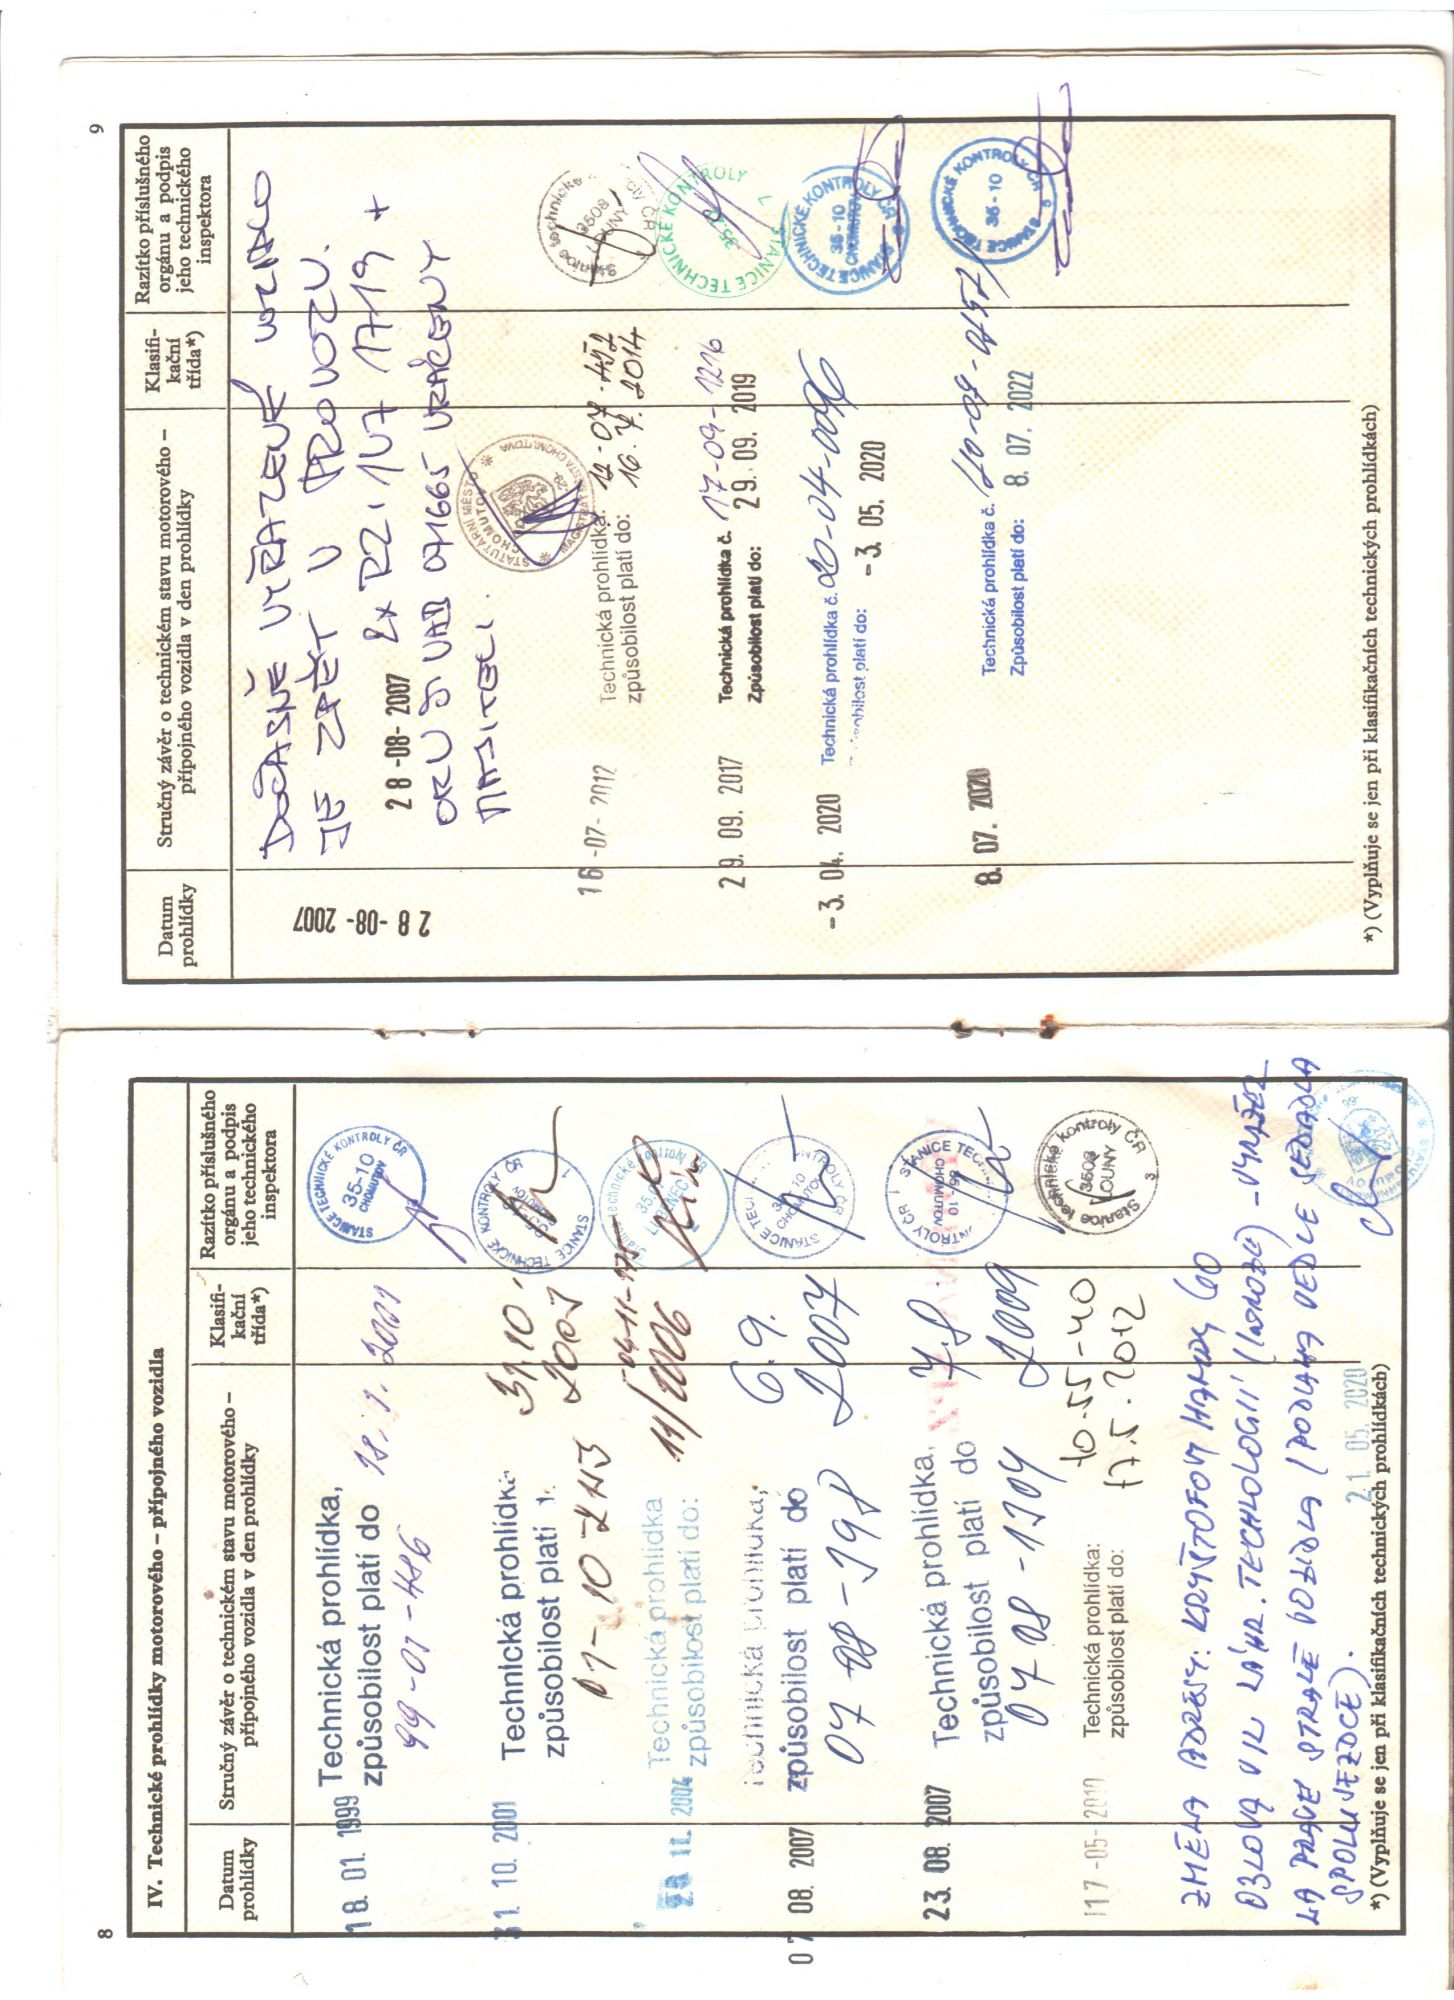 8
IV. Technické prohlídky motorového – přípojného vozidla
Datum prohlídky
Stručný závěr o technickém stavu motorového – přípojného vozidla v den prohlídky
Klasifi-
kační
třída*)
Razítko příslušného
orgánu a podpis
jeho technického
inspektora
18. 01. 1999 Technická prohlídka,
způsobilost platí do 18. 1. 2001
99-01-486
STANICE TECHNICKÉ KONTROLY ČR
35-10
CHOMUTOV
31. 10. 2001 Technická prohlídka
způsobilost platí 31. 10.
01-10
STANICE TECHNICKÉ KONTROLY ČR
1
11. 2004 Technická prohlídka
způsobilost platí do: 11/2006
04-11-175
07 08. 2007 Technická prohlídka,
způsobilost platí do 6. 9.
2007
07-08-398
23. 08. 2007 Technická prohlídka,
způsobilost platí do 7.8
2009
07 08-1304
17-05-2010 Technická prohlídka: 10-55-40
způsobilost platí do: 17.5.2012
Stanice technické kontroly ČR
3508
LOUNY
3
ZMĚNA ADRESY: KRYŠTOFOVY HAMRY 60
TECHNOLOGII
NA PRAVÉ STRANĚ VOZIDLA (PODLAHA VEDLE SEDADLA
SPOLUJEZDCE).
21. 05. 2020
*) (Vyplňuje se jen při klasifikačních technických prohlídkách)
9
Datum
prohlídky
Stručný závěr o technickém stavu motorového –
přípojného vozidla v den prohlídky
Klasifi-
kační
třída*)
Razítko příslušného
orgánu a podpis
jeho technického
inspektora
28-08-2007
DOČASNĚ VYŘAZENÉ VOZIDLO
JE ZPĚT V PROVOZU.
28-08-2007 2x RZ: 1U7 1719 +
ORV UAB 071665 VRÁCENY
MAJITELI.
STATUTÁRNÍ MĚSTO CHOMUTOV
MAGISTRÁT MĚSTA CHOMUTOVA
16-07-2012 Technická prohlídka: 12-07-452
způsobilost platí do: 16.7.2014
Stanice technické
3508
LOUNY
29. 09. 2017 Technická prohlídka č. 17-09-1216
Způsobilost platí do: 29. 09. 2019
STANICE TECHNICKÉ KONTROLY
7
-3. 04. 2020 Technická prohlídka č. 20-04-0096
Způsobilost platí do: -3. 05. 2020
STANICE TECHNICKÉ KONTROLY ČR
35-10
CHOMUTOV
8. 07. 2020 Technická prohlídka č. 20-07-0157
Způsobilost platí do: 8. 07. 2022
STANICE TECHNICKÉ KONTROLY ČR
35-10
5
*) (Vyplňuje se jen při klasifikačních technických prohlídkách)